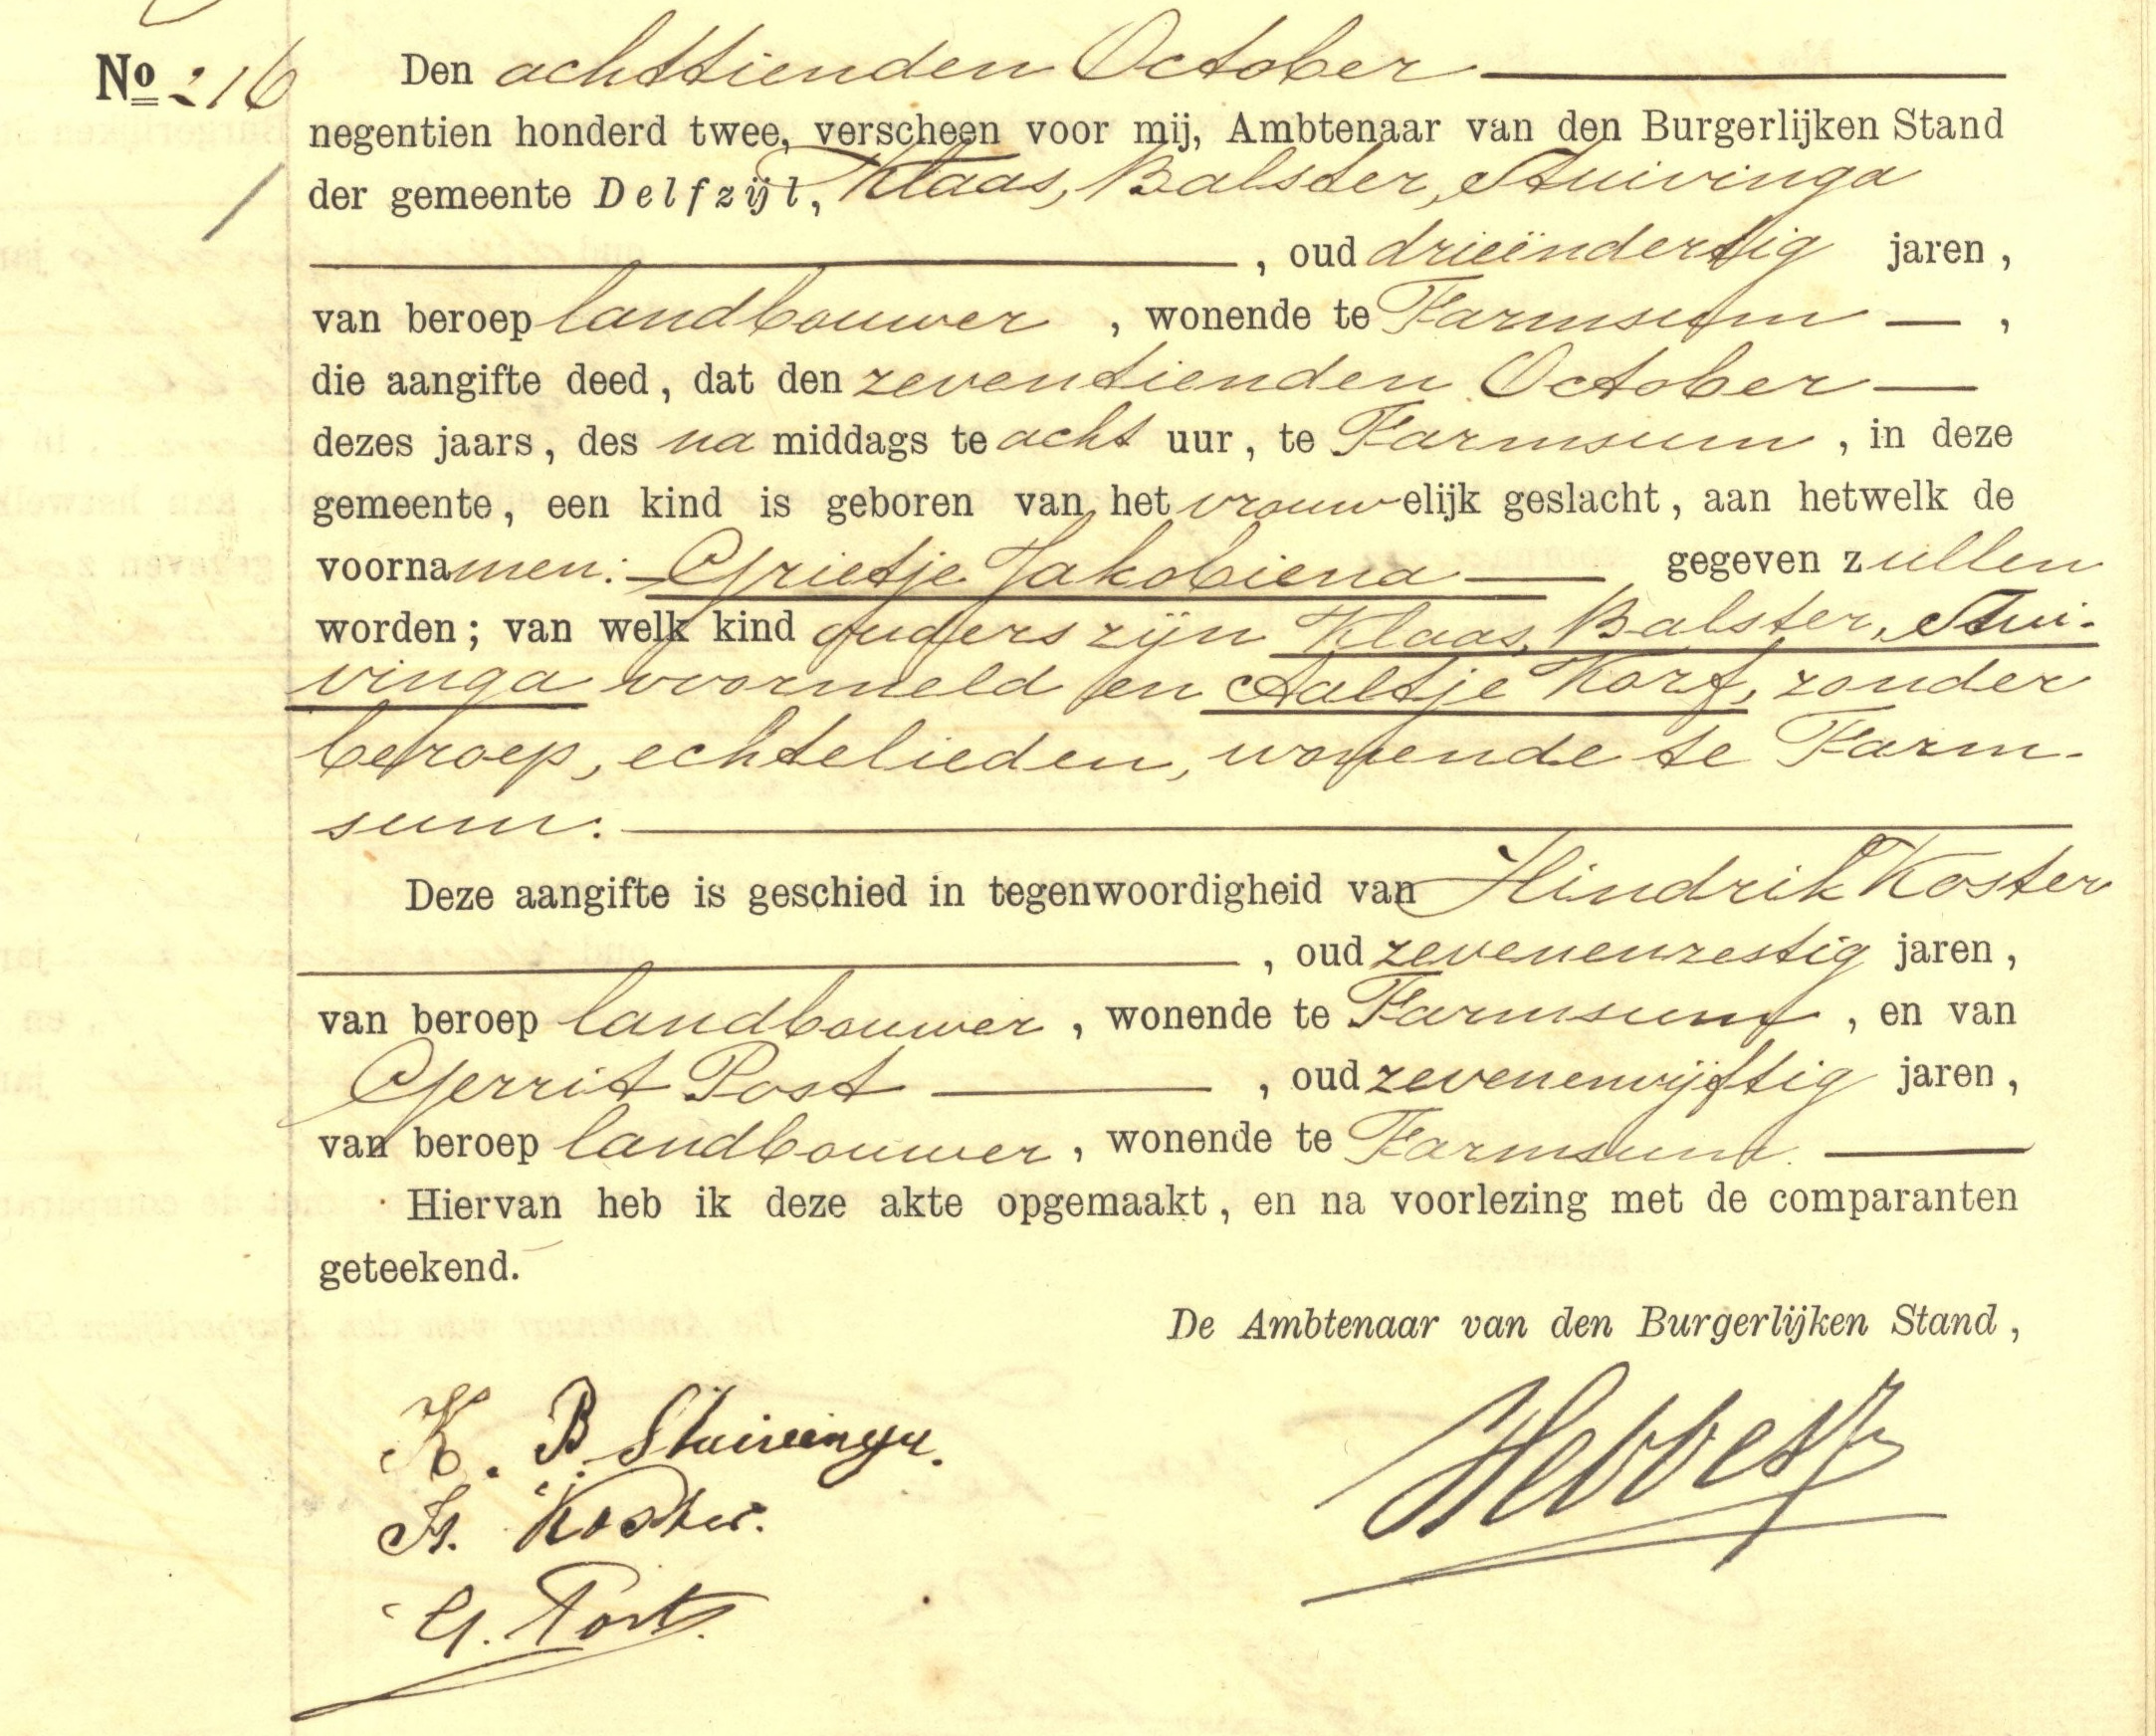 No 216 Den achttienden October
negentien honderd twee, verscheen voor mij, Ambtenaar van den Burgerlijken Stand
der gemeente Delfzijl, Klaas, Balster, Stuivinga
, oud drieëndertig jaren,
van beroep landbouwer, wonende te Farmsum — ,
die aangifte deed, dat den zeventienden October —
dezes jaars, des na middags te acht uur, te Farmsum, in deze
gemeente, een kind is geboren van het vrouwelijk geslacht, aan hetwelk de
voornamen: Grietje Jakobiena — gegeven zullen
worden; van welk kind ouders zijn Klaas, Balster, Stui-
vinga voormeld en Aaltje Korf, zonder
beroep, echtelieden, wonende te Farm-
sum.
Deze aangifte is geschied in tegenwoordigheid van Hindrik Koster
, oud zevenenzestig jaren,
van beroep landbouwer, wonende te Farmsum, en van
Gerrit Post — , oud zevenenvijftig jaren,
van beroep landbouwer, wonende te Farmsum.
Hiervan heb ik deze akte opgemaakt, en na voorlezing met de comparanten
geteekend.
De Ambtenaar van den Burgerlijken Stand,
K. B. Stuivinga.
H. Koster.
G. Post.